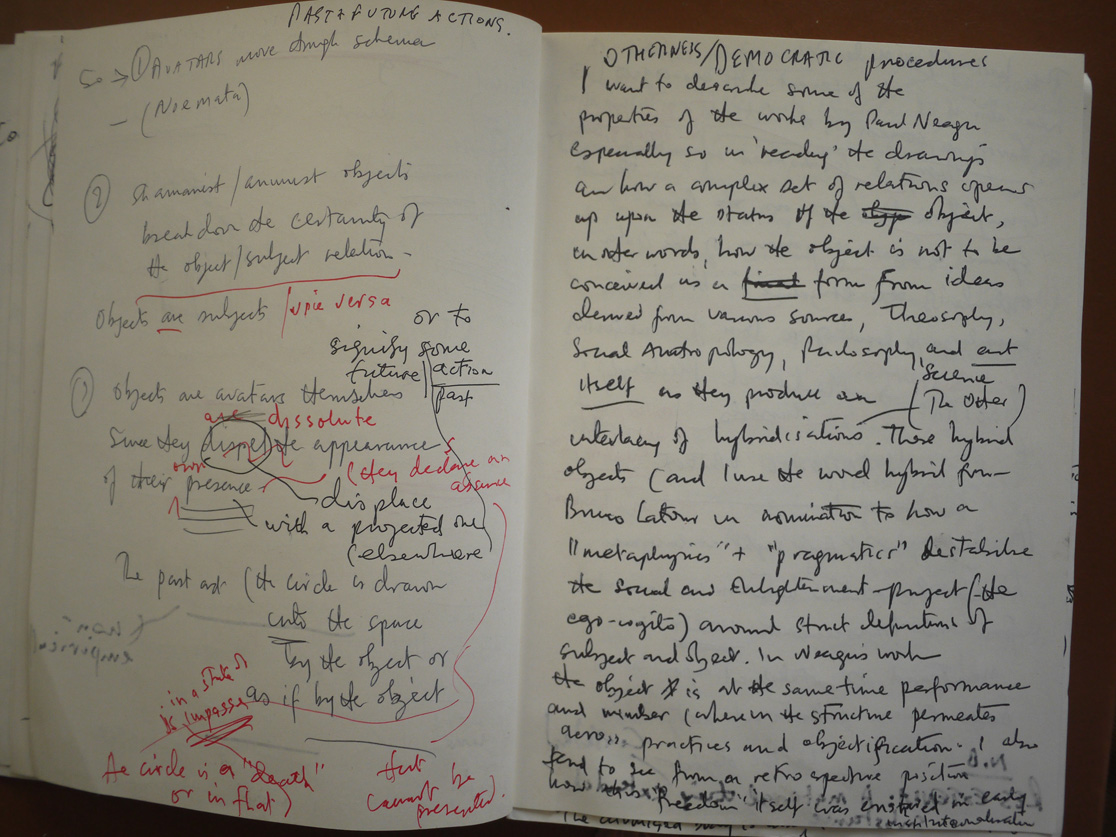 PAST & FUTURE ACTIONS.
So → ① AVATARS move through schema
– (Noemata)
② shamanist/animist objects
break down the certainty of
the object/subject relation –
Objects are subjects / vice versa
or to
signify some
future action
past
Objects are avatars themselves
are dissolute
Since they dispel the appearance
own
of their presence
(they declare an
absence
displace
with a projected one
(elsewhere)
The past act (the circle is drawn
into the space
by the object or
as if by the object
in a state of
impasse
the circle is a "death"
or in that)
that
cannot be
presented.
OTHERNESS/DEMOCRATIC procedures
I want to describe some of the
properties of the works by Paul Neagu
especially so in 'reading' the drawings
an how a complex set of relations opens
up upon the status of the object,
in other words, how the object is not to be
conceived as a final form from ideas
derived from various sources, Theosophy,
Social Anthropology, Philosophy, and art
Science
itself as they produce an (The Other)
interlacing of hybridisations. These hybrid
objects (and I use the word hybrid from
Bruno Latour in nomination to how a
"metaphysics" + "pragmatics" destabilise
the social and Enlightenment – project (– the
ego-cogito) around strict definitions of
subject and object. In Neagu's work
the object is at the same time performance
and number (wherein the structure permeates
across practices and objectification. I also
tend to see from a retrospective position
how this "freedom" itself was enshrined in early